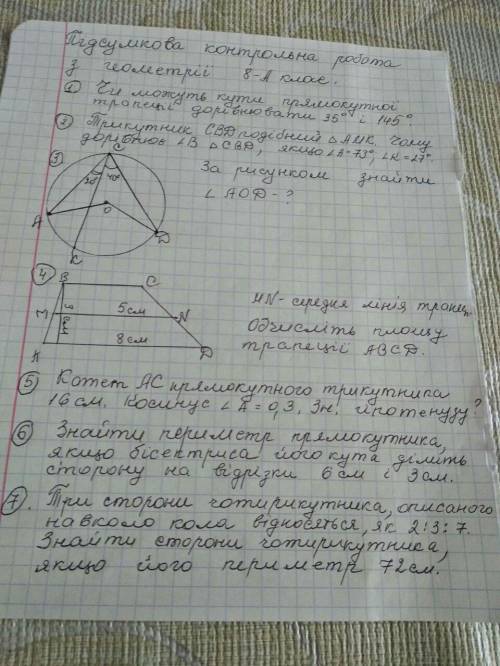 Підсумкова контрольна робота
з геометрії 8-А клас.
① Чи можуть кути прямокутної
трапеції дорівнювати 35° і 145°
② Трикутник СВD подібний △АМК. Чому
дорівнює ∠В △СВD, якщо
③ За рисунком знайти
∠AOD-?
C
20° 40°
A O D
K
④
B C
M 5см N
A 8см D
MN- середня лінія трапец.
Обчисліть площу
трапеції ABCD.
⑤ Катет АС прямокутного трикутника
16 см. Косинус ∠А = 0,3. Зн. гіпотенузу?
⑥ Знайти периметр прямокутника,
якщо бісектриса його кута ділить
сторону на відрізки 6 см і 3 см.
⑦. Три сторони чотирикутника, описаного
навколо кола відносяться, як 2:3:7.
Знайти сторони чотирикутника,
якщо його периметр 72 см.